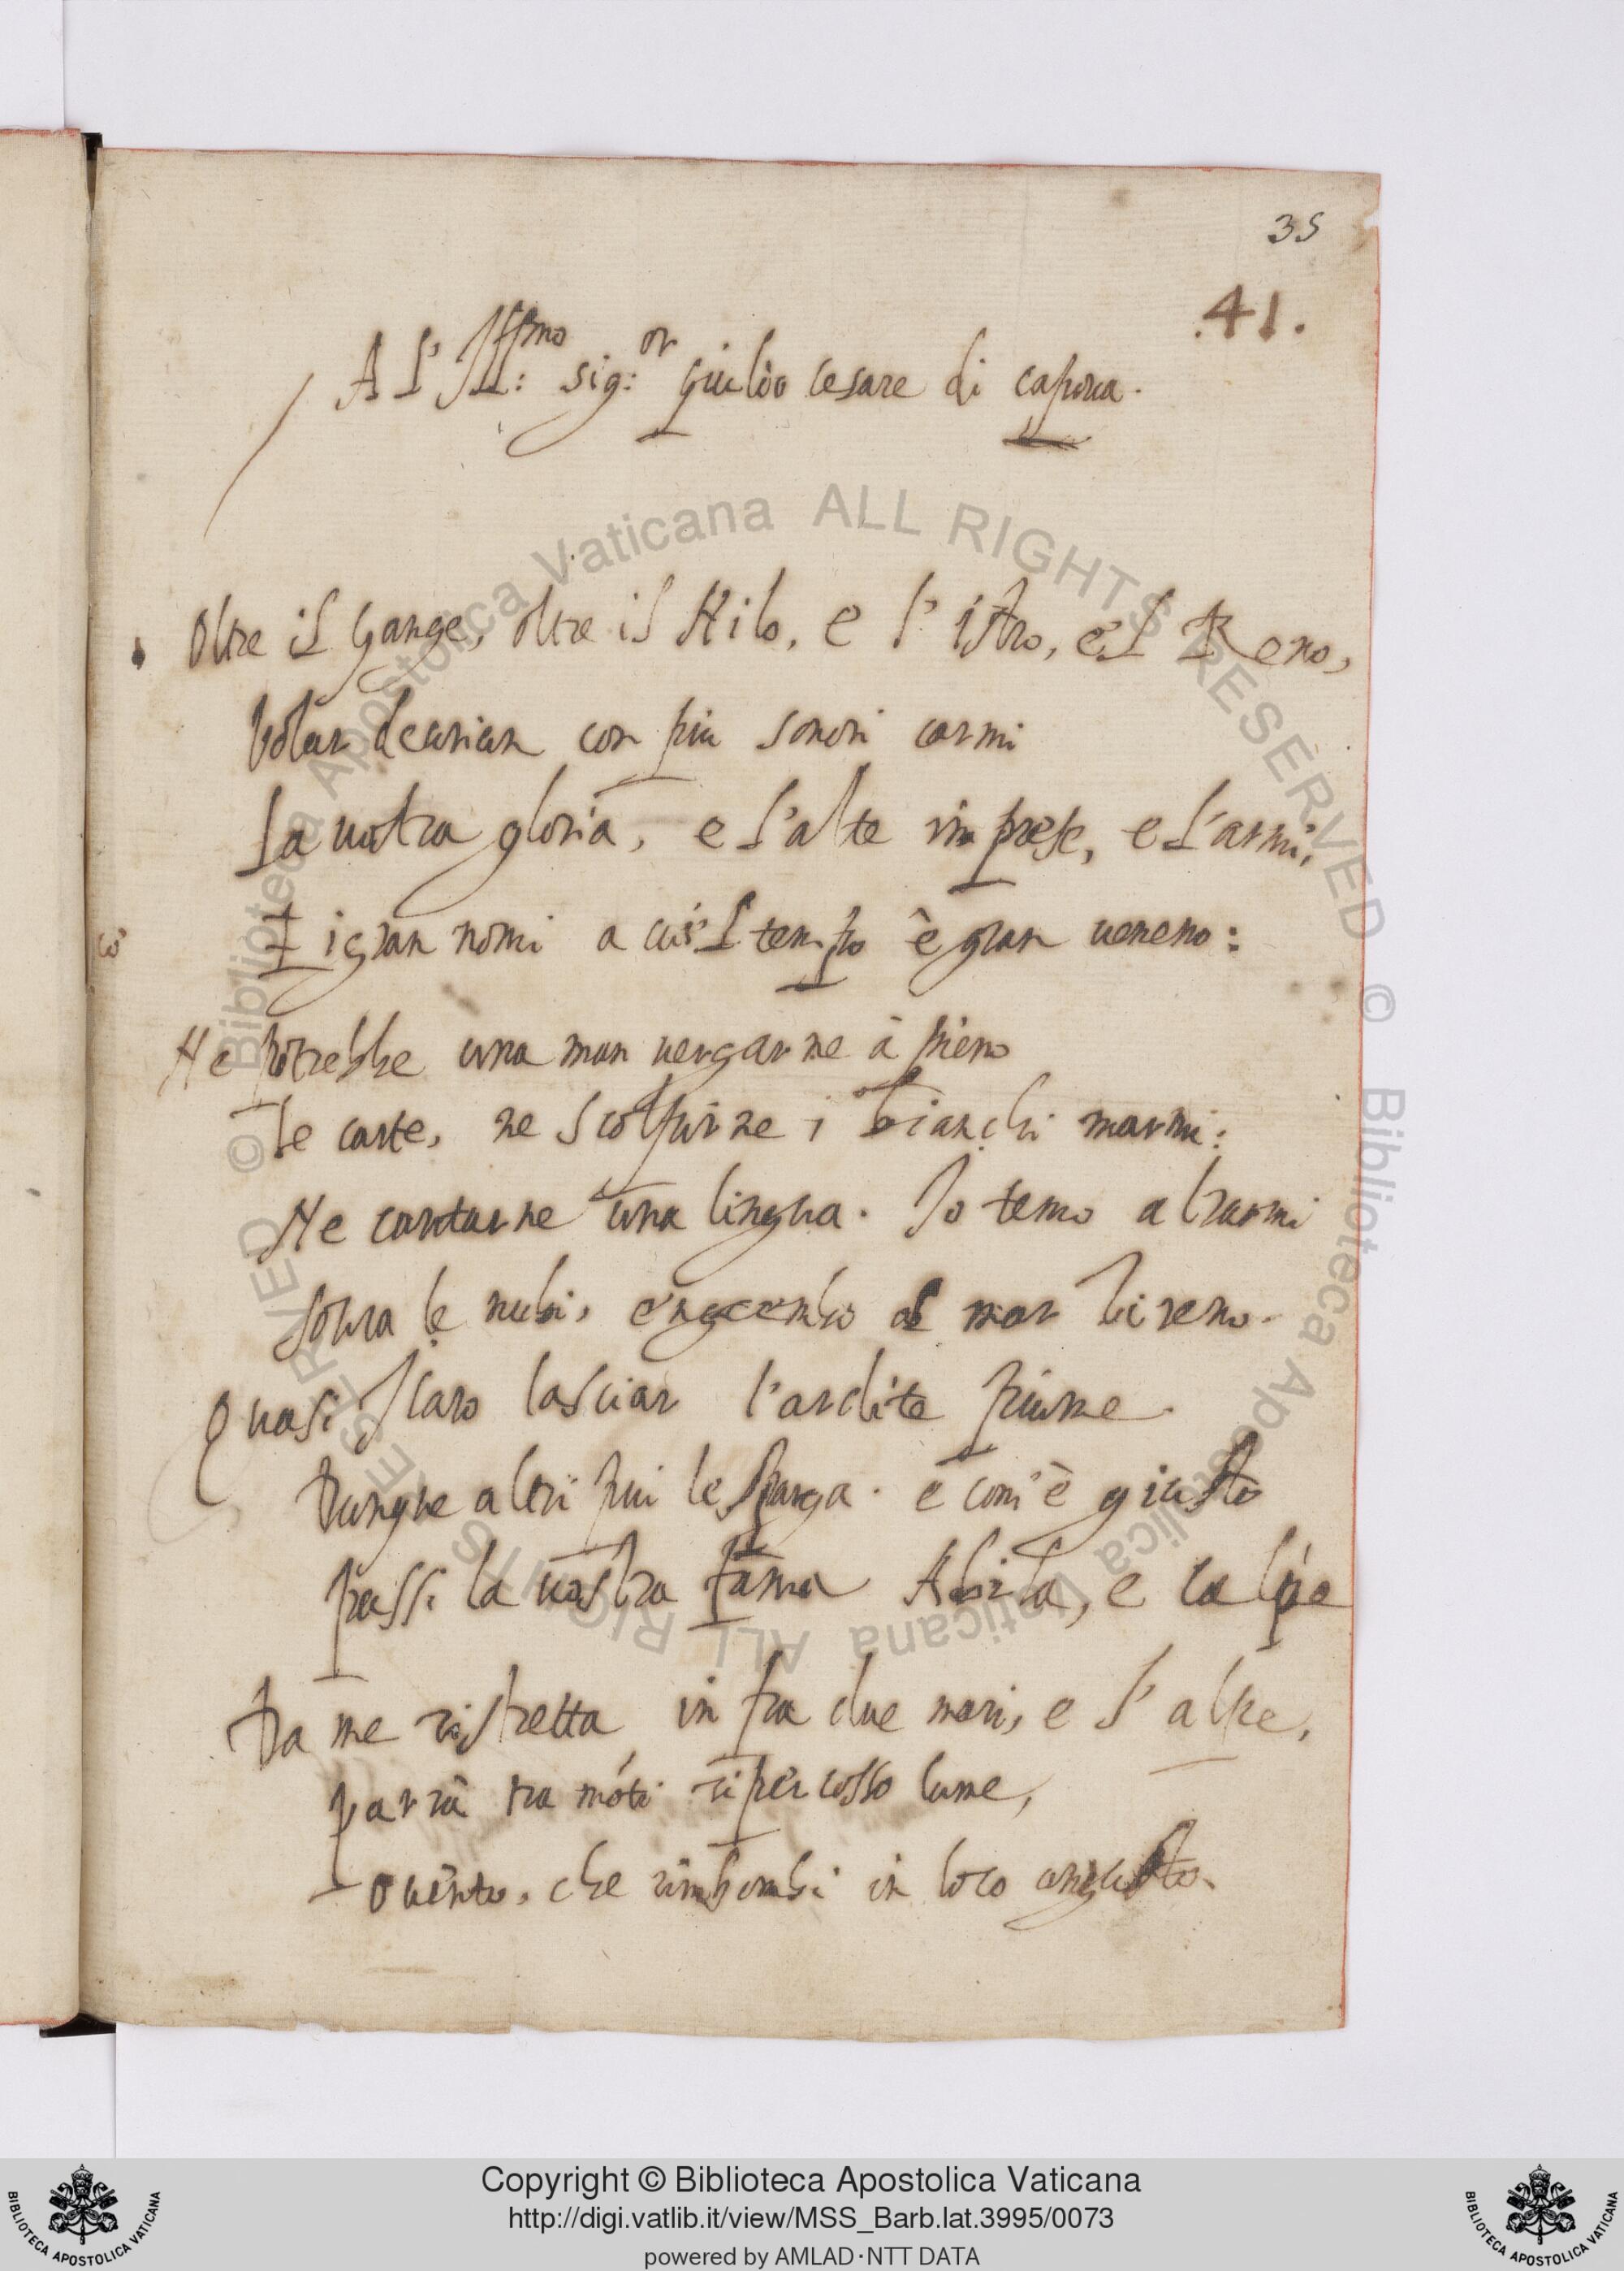 35
.41.
A l'Ill:mo sig:or giulio cesare di capoua.
Oltre il Gange, oltre il Nilo, e l'istro, e'l Reno,
Volar deurian con piu sonori carmi
La uostra gloria, e l'alte imprese, e l'armi,
E i gran nomi a cui'l tempo è gran ueneno:
Ne potrebbe una man uergarne à pieno
le carte, ne scolpirne i bianchi marmi:
Ne cantarne una lingua. Io temo alzarmi
soura le nubi, e'n grembo al mar tireno.
Quasi Icaro lasciar l'ardite piume.
Dunque altri piu le sparga. e com'è giusto
passi la uostra fama Abila, e calpe
Da me ristretta in fra due mari, e l'alpe,
parrà tra monti ripercosso lume,
o uento, che rimbombi in loco angusto.
© Biblioteca Apostolica Vaticana ALL RIGHTS RESERVED © Biblioteca Apostolica Vaticana ALL RIGHTS RESERVED
Copyright © Biblioteca Apostolica Vaticana
http://digi.vatlib.it/view/MSS_Barb.lat.3995/0073
powered by AMLAD·NTT DATA
BIBLIOTECA APOSTOLICA VATICANA
BIBLIOTECA APOSTOLICA VATICANA